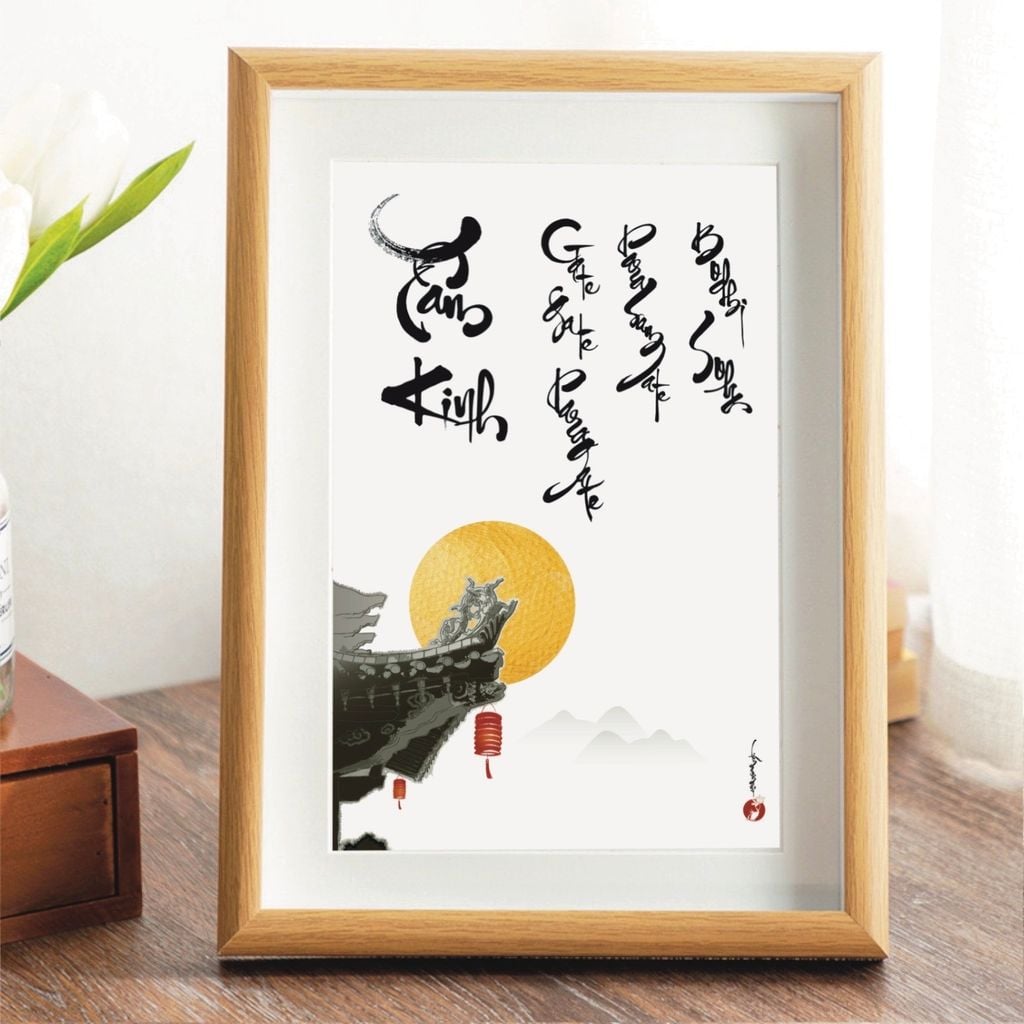 Tâm
Kinh
Gate
Gate
Para
Gate
Para
Sam
Gate
Bodhi